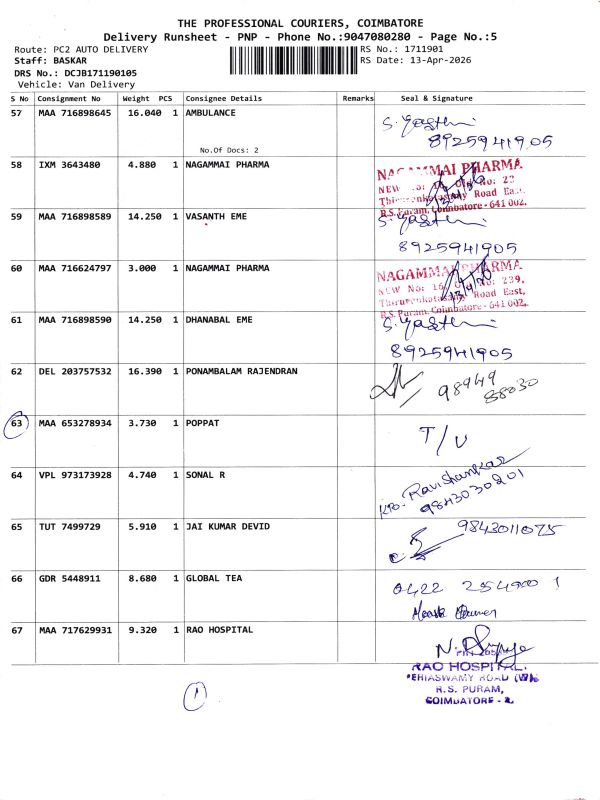 THE PROFESSIONAL COURIERS, COIMBATORE
Delivery Runsheet - PNP - Phone No.:9047080280 - Page No.:5
Route: PC2 AUTO DELIVERY
RS No.: 1711901
Staff: BASKAR
RS Date: 13-Apr-2026
DRS No.: DCJB171190105
Vehicle: Van Delivery
S No Consignment No Weight PCS Consignee Details Remarks Seal & Signature
57 MAA 716898645 16.040 1 AMBULANCE
No.Of Docs: 2
8925941905
58 IXM 3643480 4.880 1 NAGAMMAI PHARMA
NAGAMMAI PHARMA
Road East,
R.S. Puram, Coimbatore - 641 002.
59 MAA 716898589 14.250 1 VASANTH EME
8925941905
60 MAA 716624797 3.000 1 NAGAMMAI PHARMA
NAGAMMAI PHARMA
NEW No: 16, Old No: 239,
Road East,
R.S. Puram, Coimbatore - 641 002.
61 MAA 716898590 14.250 1 DHANABAL EME
8925941905
62 DEL 203757532 16.390 1 PONAMBALAM RAJENDRAN
98949
88030
63 MAA 653278934 3.730 1 POPPAT
T/U
64 VPL 973173928 4.740 1 SONAL R
Ravishankar
9843030201
65 TUT 7499729 5.910 1 JAI KUMAR DEVID
9843011075
66 GDR 5448911 8.680 1 GLOBAL TEA
0422
67 MAA 717629931 9.320 1 RAO HOSPITAL
RAO HOSPITAL.
R.S. PURAM,
COIMBATORE - 2.
1